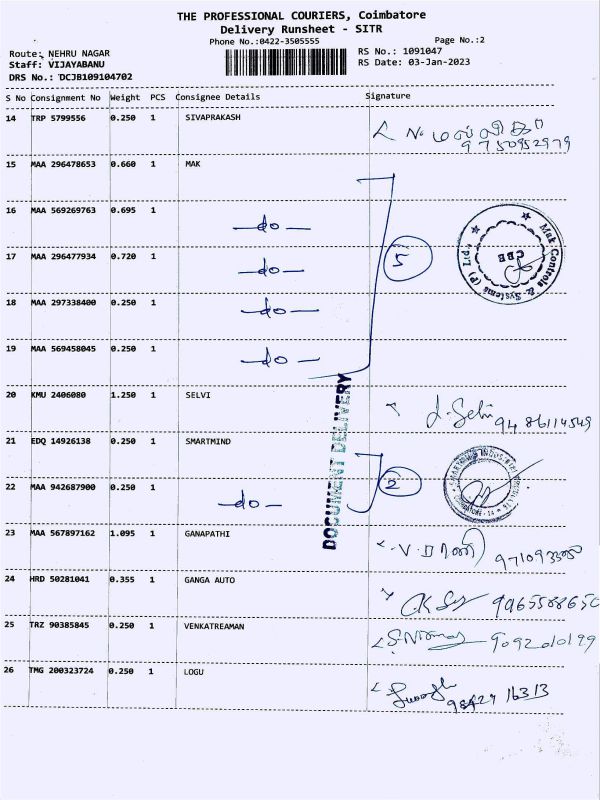 THE PROFESSIONAL COURIERS, Coimbatore
Delivery Runsheet - SITR
Phone No.:0422-3505555
Page No.:2
Route: NEHRU NAGAR
RS No.: 1091047
Staff: VIJAYABANU
RS Date: 03-Jan-2023
DRS No.: DCJB109104702
S No Consignment No Weight PCS Consignee Details Signature
14 TRP 5799556 0.250 1 SIVAPRAKASH
N. மல்லிகா
9750952979
15 MAA 296478653 0.660 1 MAK
16 MAA 569269763 0.695 1
-do-
5
Mak Controls & Systems (P) Ltd.,
CBE
17 MAA 296477934 0.720 1
-do-
18 MAA 297338400 0.250 1
-do-
19 MAA 569458045 0.250 1
-do-
DOCUMENT DELIVERY
20 KMU 2406080 1.250 1 SELVI
9486114549
21 EDQ 14926138 0.250 1 SMARTMIND
2
22 MAA 942687900 0.250 1
-do-
23 MAA 567897162 1.095 1 GANAPATHI
24 HRD 50281041 0.355 1 GANGA AUTO
25 TRZ 90385845 0.250 1 VENKATREAMAN
26 TMG 200323724 0.250 1 LOGU